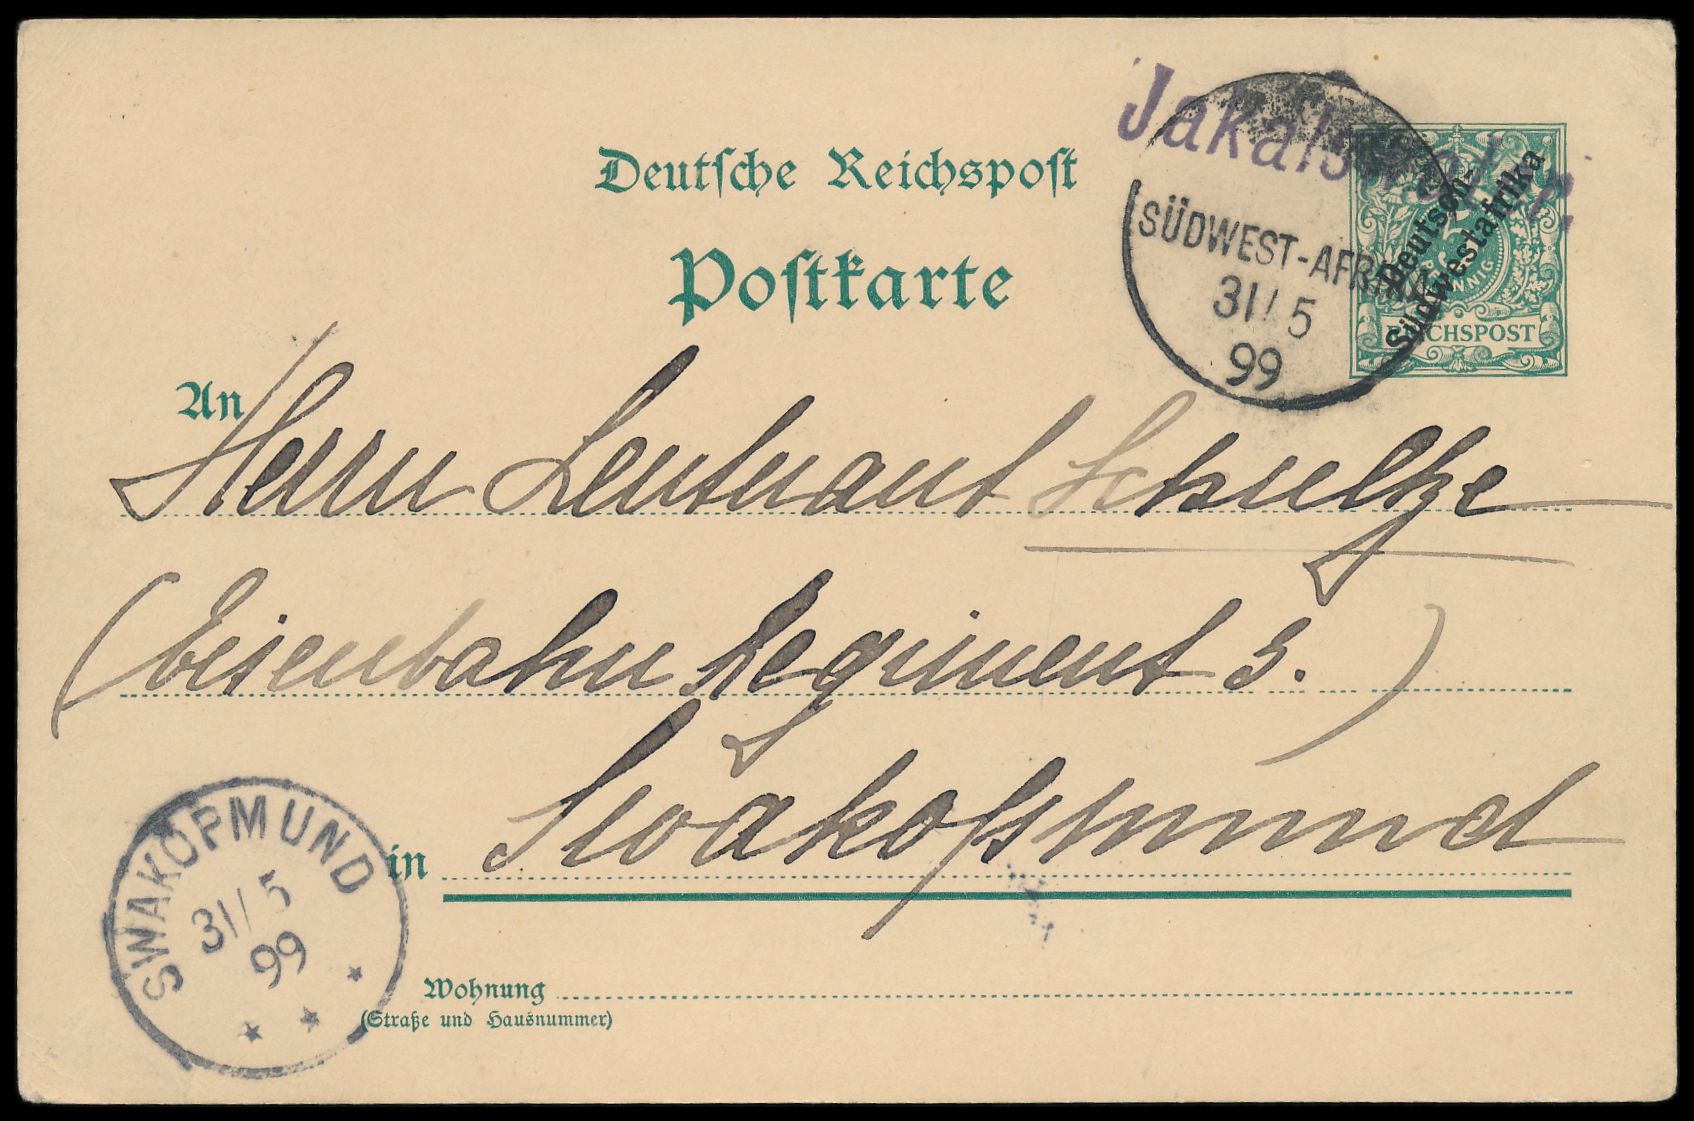 Jakalswater.
SÜDWEST-AFRIKA
31/5
99
Deutsche Reichspost
Postkarte
5
PFENNIG
REICHSPOST
Deutsch-
Südwestafrika
An Herrn Leutnant Schultze
(Eisenbahn Regiment 3.)
in Swakopmund
SWAKOPMUND
31/5
99
Wohnung
(Straße und Hausnummer)